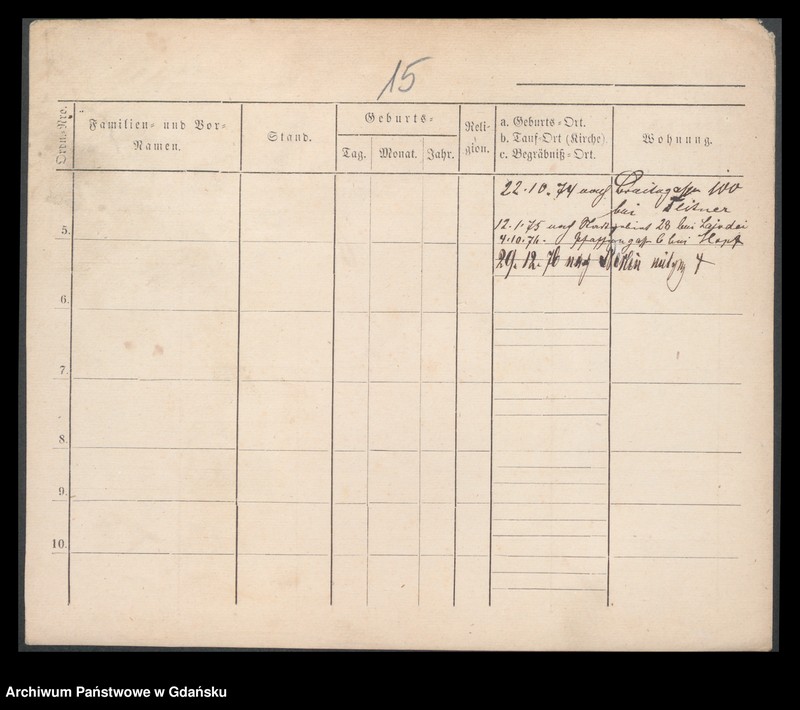 15
Ordn.-Nro.
Familien- und Vor-
Namen.
Stand.
Geburts-
Tag. Monat. Jahr.
Reli-
gion.
a. Geburts-Ort.
b. Tauf-Ort (Kirche).
c. Begräbniß-Ort.
Wohnung.
22.10.74 nach Breitegasse 100
bei
12.1.75 nach 28 bei
4.10.76. Pfaffengasse 6 bei Hopf
29.12.76 nach Berlin
5.
6.
7.
8.
9.
10.
Archiwum Państwowe w Gdańsku